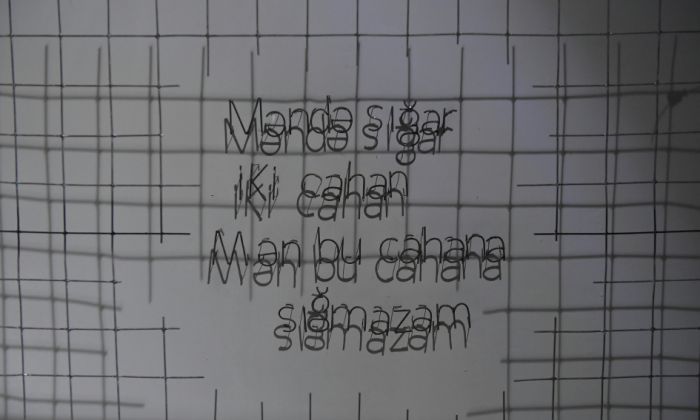 Məndə sığar
iki cahan
Mən bu cahana
sığmazam